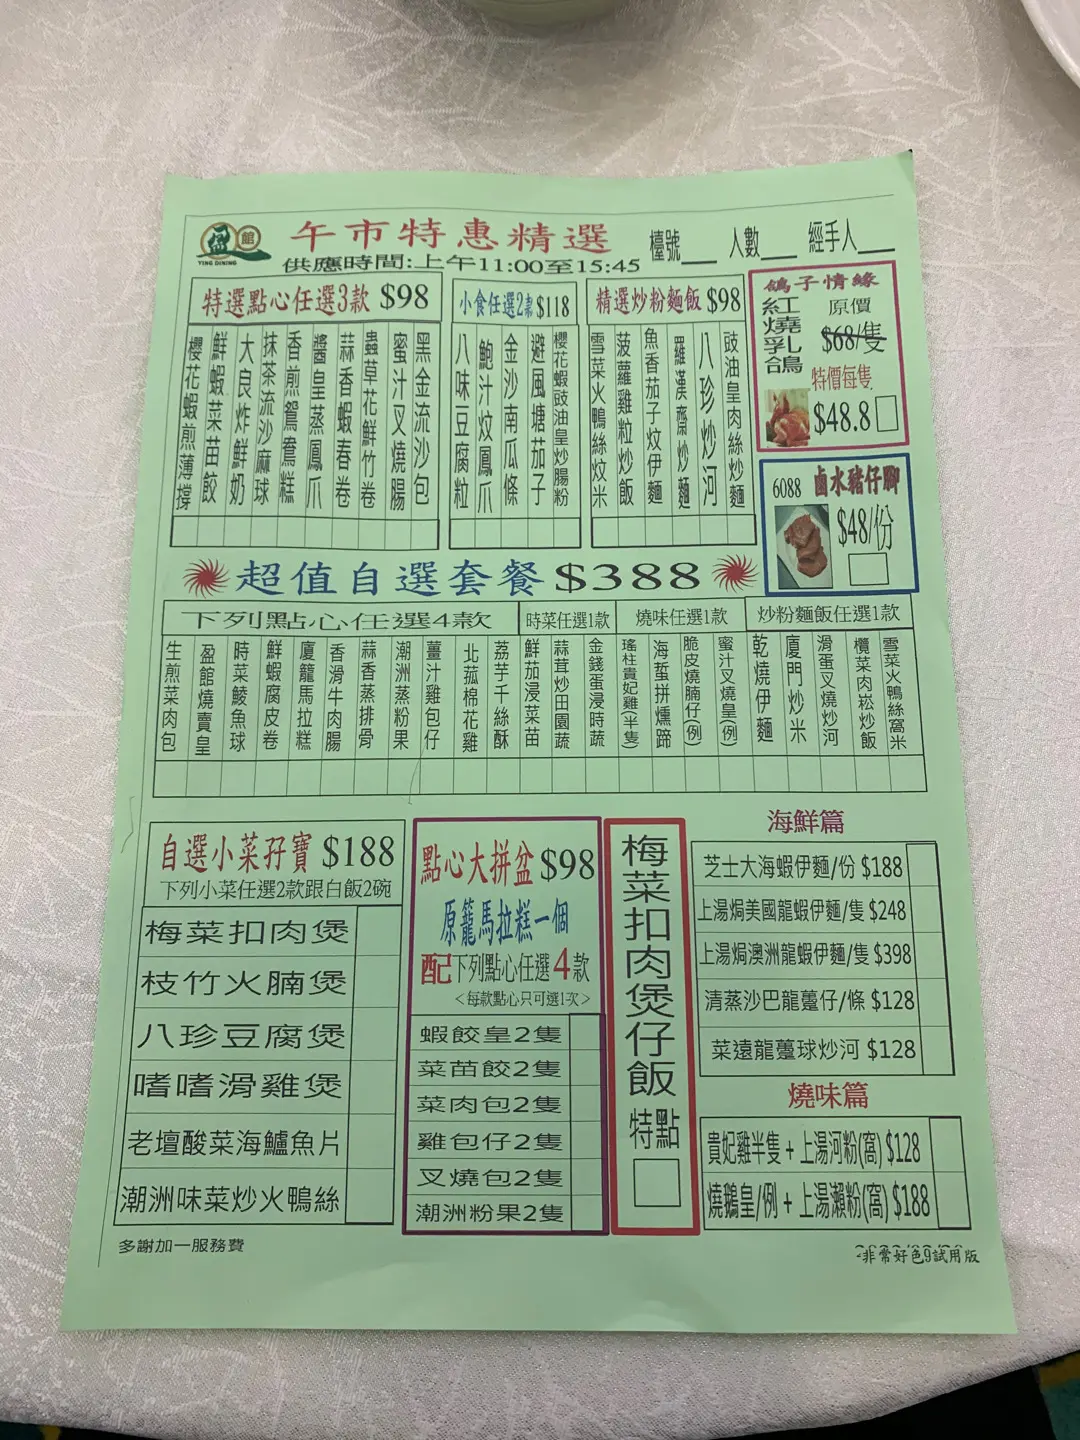 盈館
YING DINING
午市特惠精選
供應時間:上午11:00至15:45
檯號
人數
經手人
特選點心任選3款 $98
櫻花蝦煎薄撐
鮮蝦菜苗餃
大良炸鮮奶
抹茶流沙麻球
香煎鴛鴦糕
醬皇蒸鳳爪
蒜香蝦春卷
蟲草花鮮竹卷
蜜汁叉燒腸
黑金流沙包
小食任選2款 $118
八味豆腐粒
鮑汁炆鳳爪
金沙南瓜條
避風塘茄子
櫻花蝦豉油皇炒腸粉
精選炒粉麵飯 $98
雪菜火鴨絲炆米
菠蘿雞粒炒飯
魚香茄子炆伊麵
羅漢齋炒麵
八珍炒河
豉油皇肉絲炒麵
鴿子情緣
紅燒乳鴿
原價
$68/隻
特價每隻
$48.8
6088 鹵水豬仔腳
$48/份
超值自選套餐 $388
下列點心任選4款
生煎菜肉包
盈館燒賣皇
時菜鯪魚球
鮮蝦腐皮卷
廈籠馬拉糕
香滑牛肉腸
蒜香蒸排骨
潮洲蒸粉果
薑汁雞包仔
北菰棉花雞
荔芋千絲酥
時菜任選1款
鮮茄浸菜苗
蒜茸炒田園蔬
金錢蛋浸時蔬
燒味任選1款
瑤柱貴妃雞(半隻)
海蜇拼燻蹄
脆皮燒腩仔(例)
蜜汁叉燒皇(例)
炒粉麵飯任選1款
乾燒伊麵
廈門炒米
滑蛋叉燒炒河
欖菜肉崧炒飯
雪菜火鴨絲窩米
自選小菜孖寶 $188
下列小菜任選2款跟白飯2碗
梅菜扣肉煲
枝竹火腩煲
八珍豆腐煲
嗜嗜滑雞煲
老壇酸菜海鱸魚片
潮洲味菜炒火鴨絲
多謝加一服務費
點心大拼盆 $98
原籠馬拉糕一個
配下列點心任選4款
<每款點心只可選1次>
蝦餃皇2隻
菜苗餃2隻
菜肉包2隻
雞包仔2隻
叉燒包2隻
潮洲粉果2隻
梅菜扣肉煲仔飯
特點
海鮮篇
芝士大海蝦伊麵/份 $188
上湯焗美國龍蝦伊麵/隻 $248
上湯焗澳洲龍蝦伊麵/隻 $398
清蒸沙巴龍躉仔/條 $128
菜遠龍躉球炒河 $128
燒味篇
貴妃雞半隻 + 上湯河粉(窩) $128
燒鵝皇/例 + 上湯瀨粉(窩) $188
非常好色9試用版